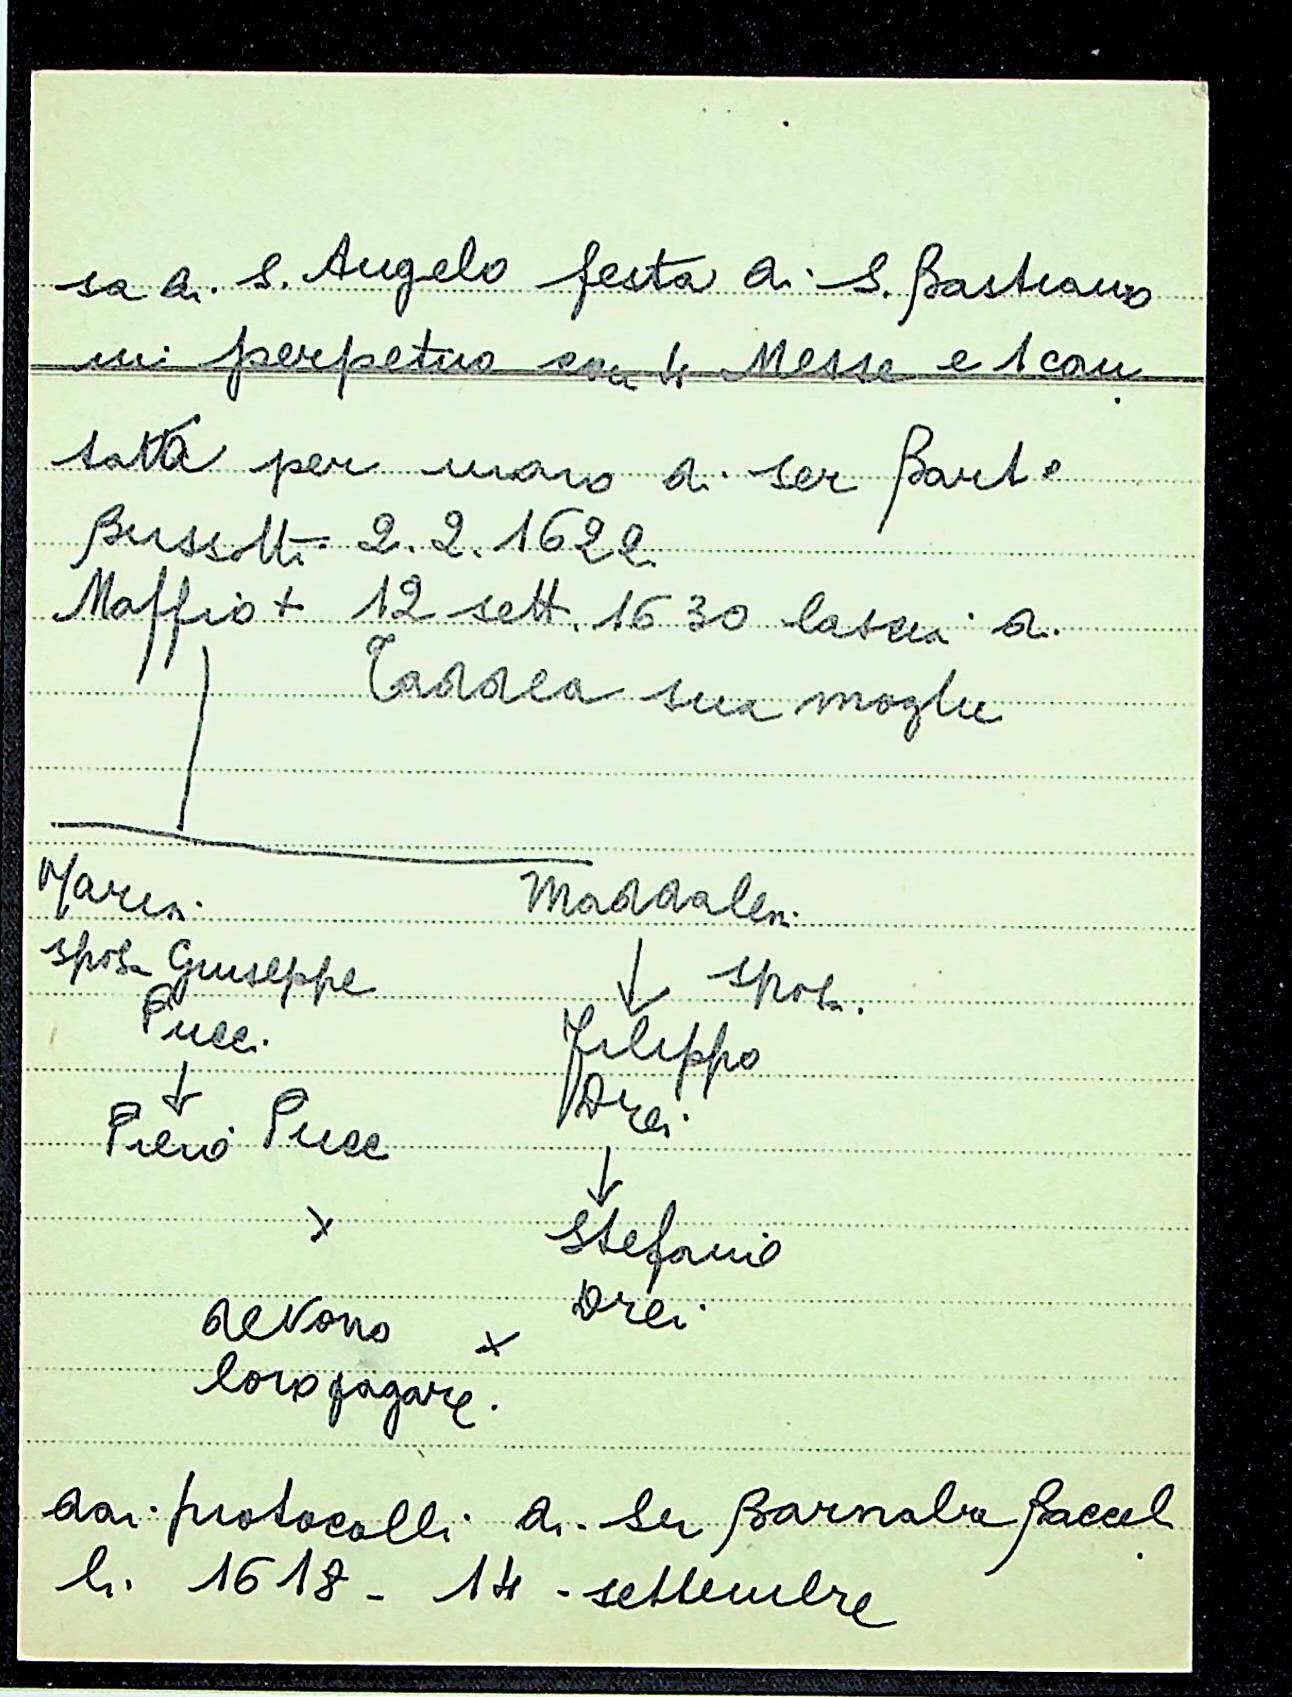 sa di S. Angelo festa di S. Bastiano
in perpetuo con 4 Messe e 1 can
tata per mano di ser Bart.o
Bussotti 2.2.1622
Maffio + 12 sett. 1630 lascia a.
Taddea sua moglie
Maria Maddalena
sposa Giuseppe sposa
Pucci Filippo
Drei
Piero Pucci
x Stefano
Drei
devono x
loro pagare.
dai protocolli di Ser Barnaba Baccel
li 1618 - 14 - settembre